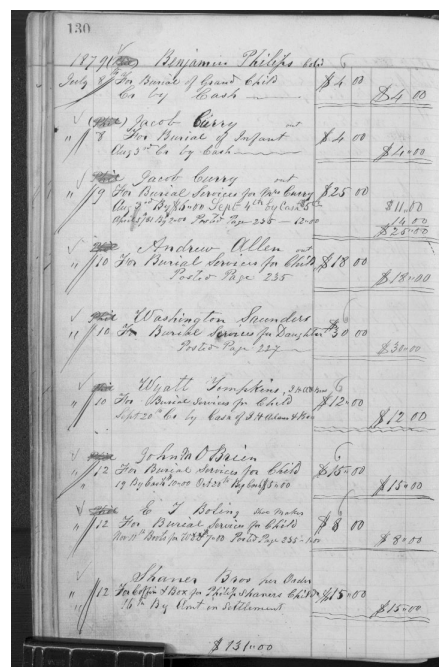 130
1879 Benjamin Philips
July 8 For Burial of Grand Child $4 00
Cr by Cash $4.00
Jacob Curry out
" 8 For Burial of Infant $4 00
Aug 3rd Cr by Cash $4.00
Jacob Curry out
" 9 For Burial Services for Mrs Curry $25 00
Aug 2nd By $5.00 Sept 4th by Cash $11.00
By 2.00 Posted Page 235 — 12.00 14.00
$25.00
Andrew Allen out
" 10 For Burial Services for Child $18 00
Posted Page 235 $18.00
Washington Saunders
" 10 For Burial Services for Daughter $30 00
Posted Page 227 $30.00
Wyatt Tompkins
" 10 For Burial Services for Child $12.00
Sept 20th Cr by Cash of $12 00
John M O'Brien
" 12 For Burial Services for Child $15.00
19 By Cash 10.00 Oct 20th By Cash $5.00 $15.00
C T Boling Shoe Maker
" 12 For Burial Services for Child $8 00
Nov 18th Posted Page 235 $8.00
Shaner Bros per Order
" 12 For Coffin & Box for Philip Shaners Child $15.00
" 16th By Amt in Settlement $15.00
$131.00